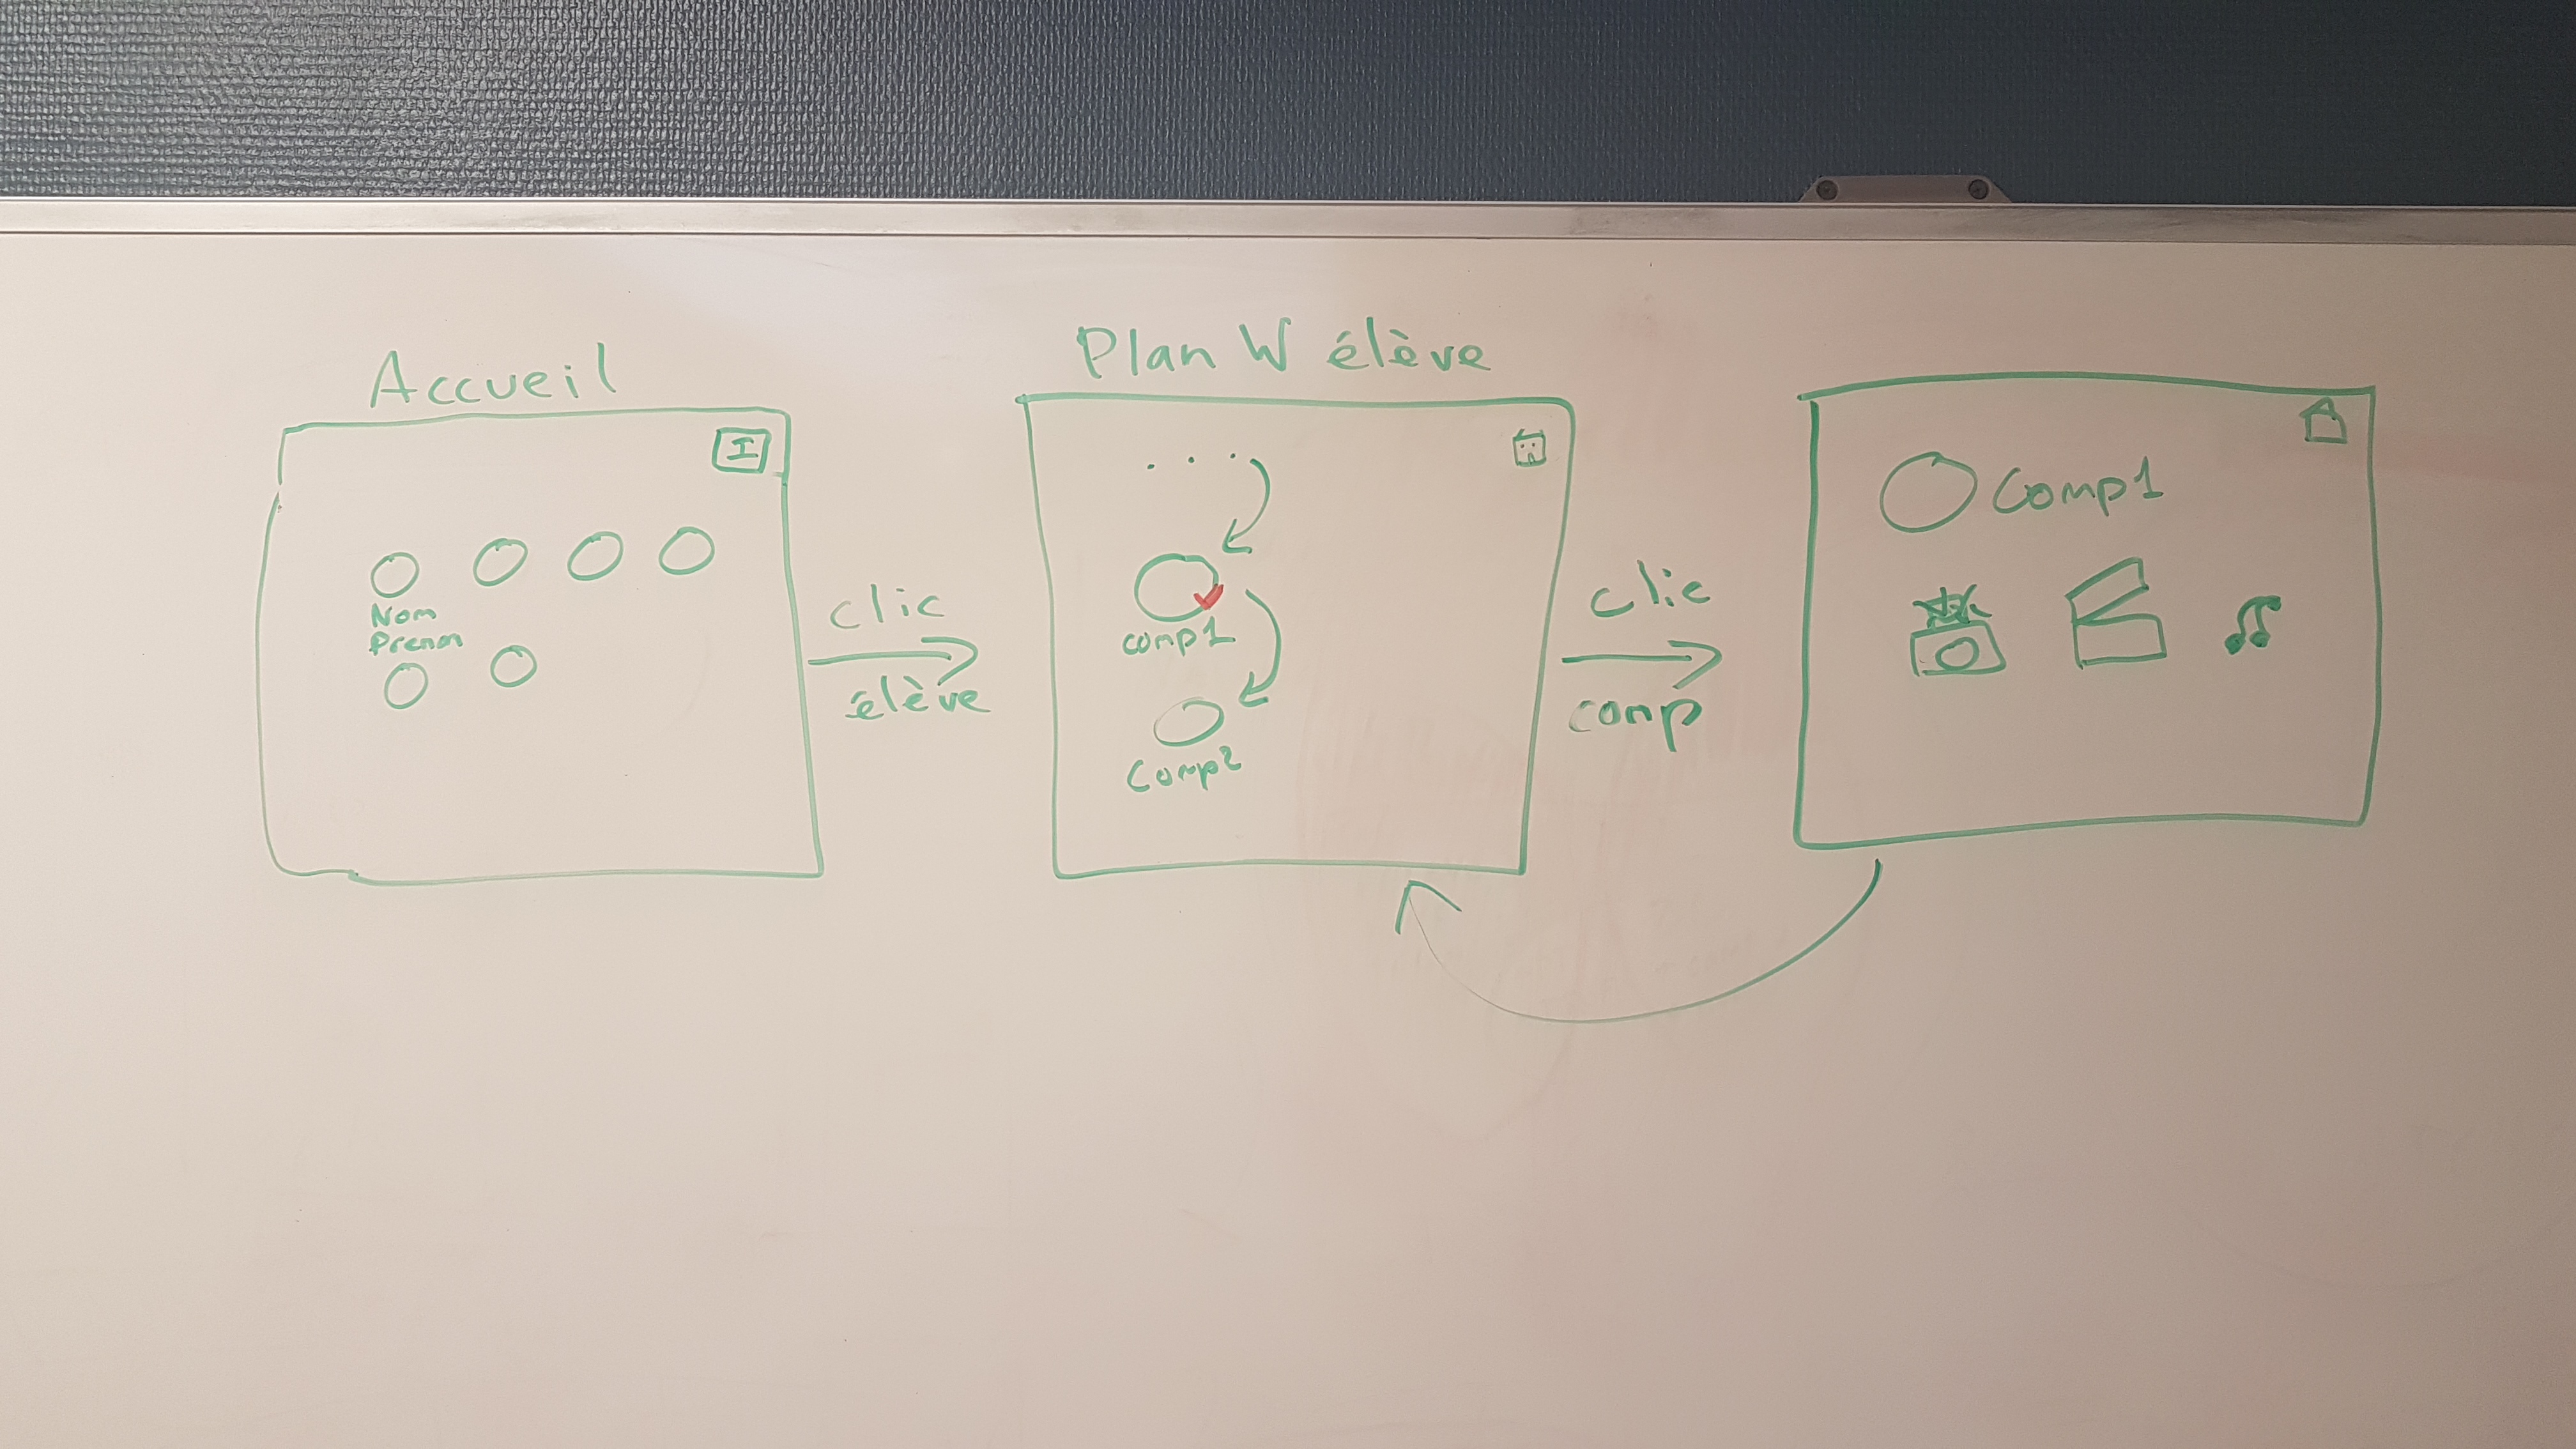 Accueil
I
Nom
Prenom
clic
élève
Plan W élève
. . .
comp1
Comp2
clic
comp
Comp1